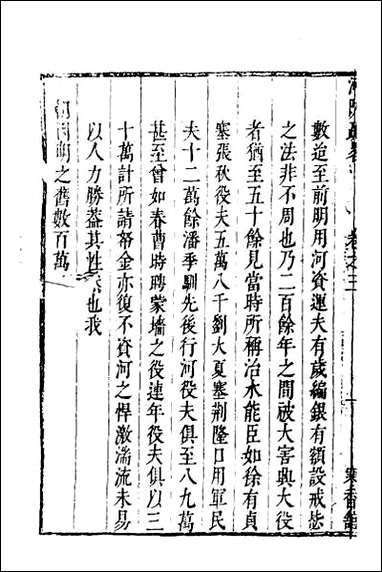 數迨至前明用河資運夫有歲編銀有額設戒
之法非不周也乃二百餘年之間被大害與大役
者猶至五十餘見當時所稱治水能臣如徐有貞
塞張秋役夫五萬八千劉大夏塞荆隆口用軍民
夫十二萬餘潘季馴先後行河役夫俱至八九萬
甚至曾如春曹時聘蒙墻之役連年役夫俱以三
十萬計所請帑金亦復不資河之悍激湍流未易
以人力勝蓋其性也我
明之舊數百萬
卷之三